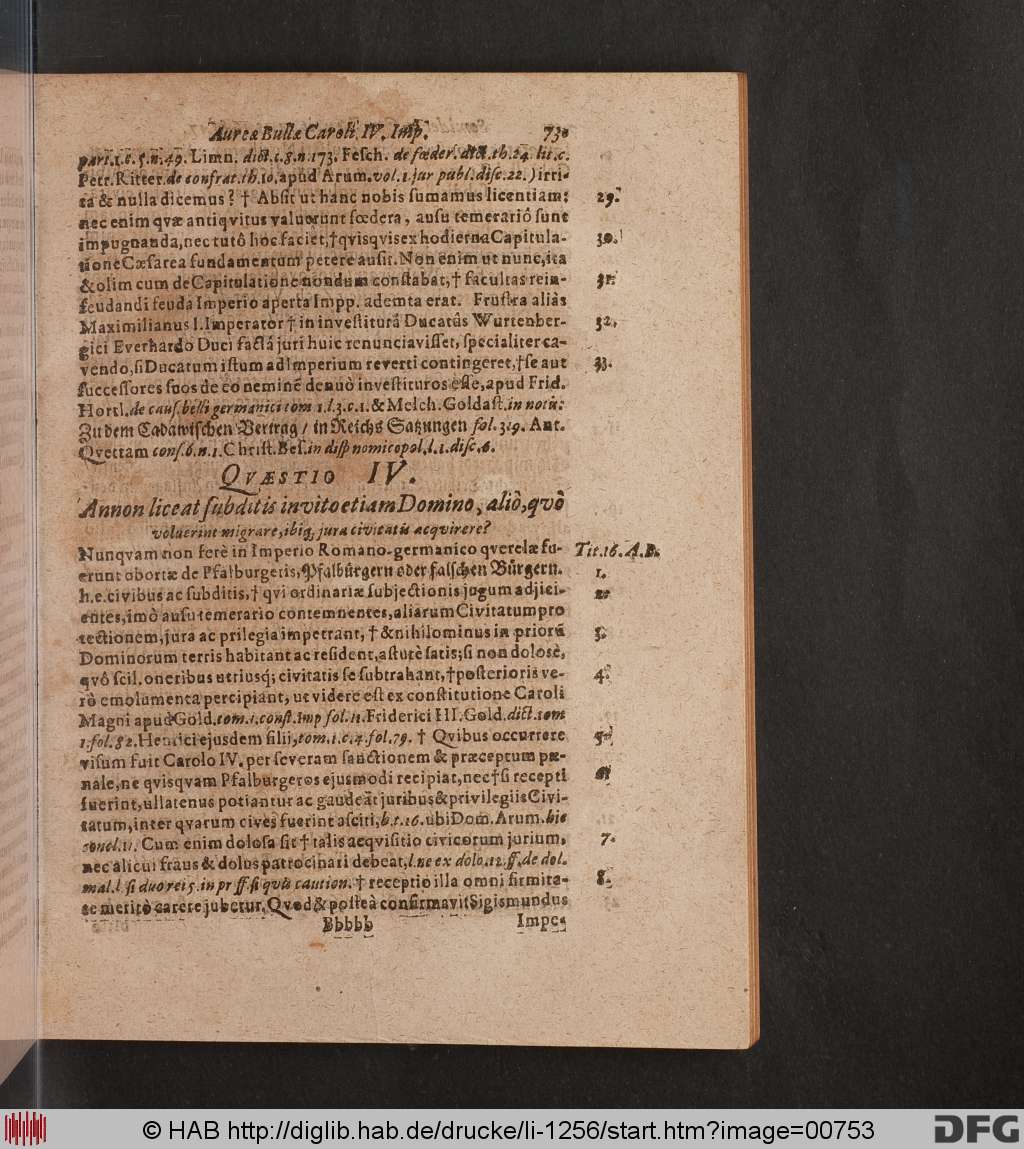 Aureæ Bullæ Caroli. IV. Imp. 730
part.1.c.5.n.49. Limn. dict.c.8.n.173. Fesch. de fœder. dict.th.24. lit.c.
Petr. Ritter. de confrat.th.10. apud Arum. vol.1.jur publ.disc.22.) irri-
ta & nulla dicemus? † Absit ut hanc nobis sumamus licentiam: 29.
nec enim qvæ antiqvitus valuerunt fœdera, ausu temerariô sunt
impugnanda, nec tutô hoc faciet, † qvisqvis ex hodierna Capitula- 30.
tione Cæsarea fundamentum petere ausit. Non enim ut nunc, ita
& olim cum de Capitulatione nondum constabat, † facultas rein- 31.
feudandi feuda Imperio aperta Impp. ademta erat. Frustra aliàs
Maximilianus I. Imperator † in investiturâ Ducatûs Wurtenber- 32.
gici Everhardo Duci factâ juri huic renunciavisset, specialiter ca-
vendo, si Ducatum istum ad Imperium reverti contingeret, † se aut 33.
successores suos de eo neminē denuò investituros esse, apud Frid.
Hortl. de caus. belli germanici tom 1.l.3.c.1. & Melch. Goldast. in notis:
Zu dem Cadawischen Vertrag / in Reichs Satzungen fol. 319. Ant.
Qvettam cons.6.n.1. Christ. Bes. in disp nomicopol.l.1.disc.6.
QVÆSTIO IV.
Annon liceat subditis invito etiam Domino, aliò, qvô
voluerint migrare, ibiq; jura civitatis acqvirere?
Nunqvam non ferè in Imperio Romano-germanico qverelæ fu- Tit.16. A.B.
erunt obortæ de Pfalburgeris, Pfalbürgern oder falschen Bürgern. 1.
h.e. civibus ac subditis, † qvi ordinariæ subjectionis jugum adjici- 2.
entes, imò ausu temerario contemnentes, aliarum Civitatum pro
tectionem, jura ac prilegia impetrant, † & nihilominus in priorū 3.
Dominorum terris habitant ac resident, astutè satis; si non dolosè,
qvô scil. oneribus utriusq; civitatis se subtrahant, † posterioris ve- 4.
rò emolumenta percipiant, ut videre est ex constitutione Caroli
Magni apud Gold. tom.1.const. Imp fol.11. Friderici III. Gold. dict. tom
1.fol.82. Henrici ejusdem filii, tom.1.c.4.fol.79. † Qvibus occurrere 5.
visum fuit Carolo IV. per severam sanctionem & præceptum pœ-
nale, ne qvisqvam Pfalburgeros ejusmodi recipiat, nec † si recepti 6.
fuerint, ullatenus potiantur ac gaudeāt juribus & privilegiis Civi-
tatum, inter qvarum cives fuerint asciti, b.t.16. ubi Dom. Arum. hic
concl.11. Cum enim dolosa sit † talis acqvisitio civicorum jurium, 7.
nec alicui fraus & dolus patrocinari debeat, l.ne ex dolo.12.ff.de dol.
mal.l.si duo rei 5.in pr ff.si qvis caution. † receptio illa omni firmita- 8.
te meritò carere jubetur. Qvod & posteà confirmavit Sigismundus
Bbbbb Impe-
© HAB http://diglib.hab.de/drucke/li-1256/start.htm?image=00753
DFG